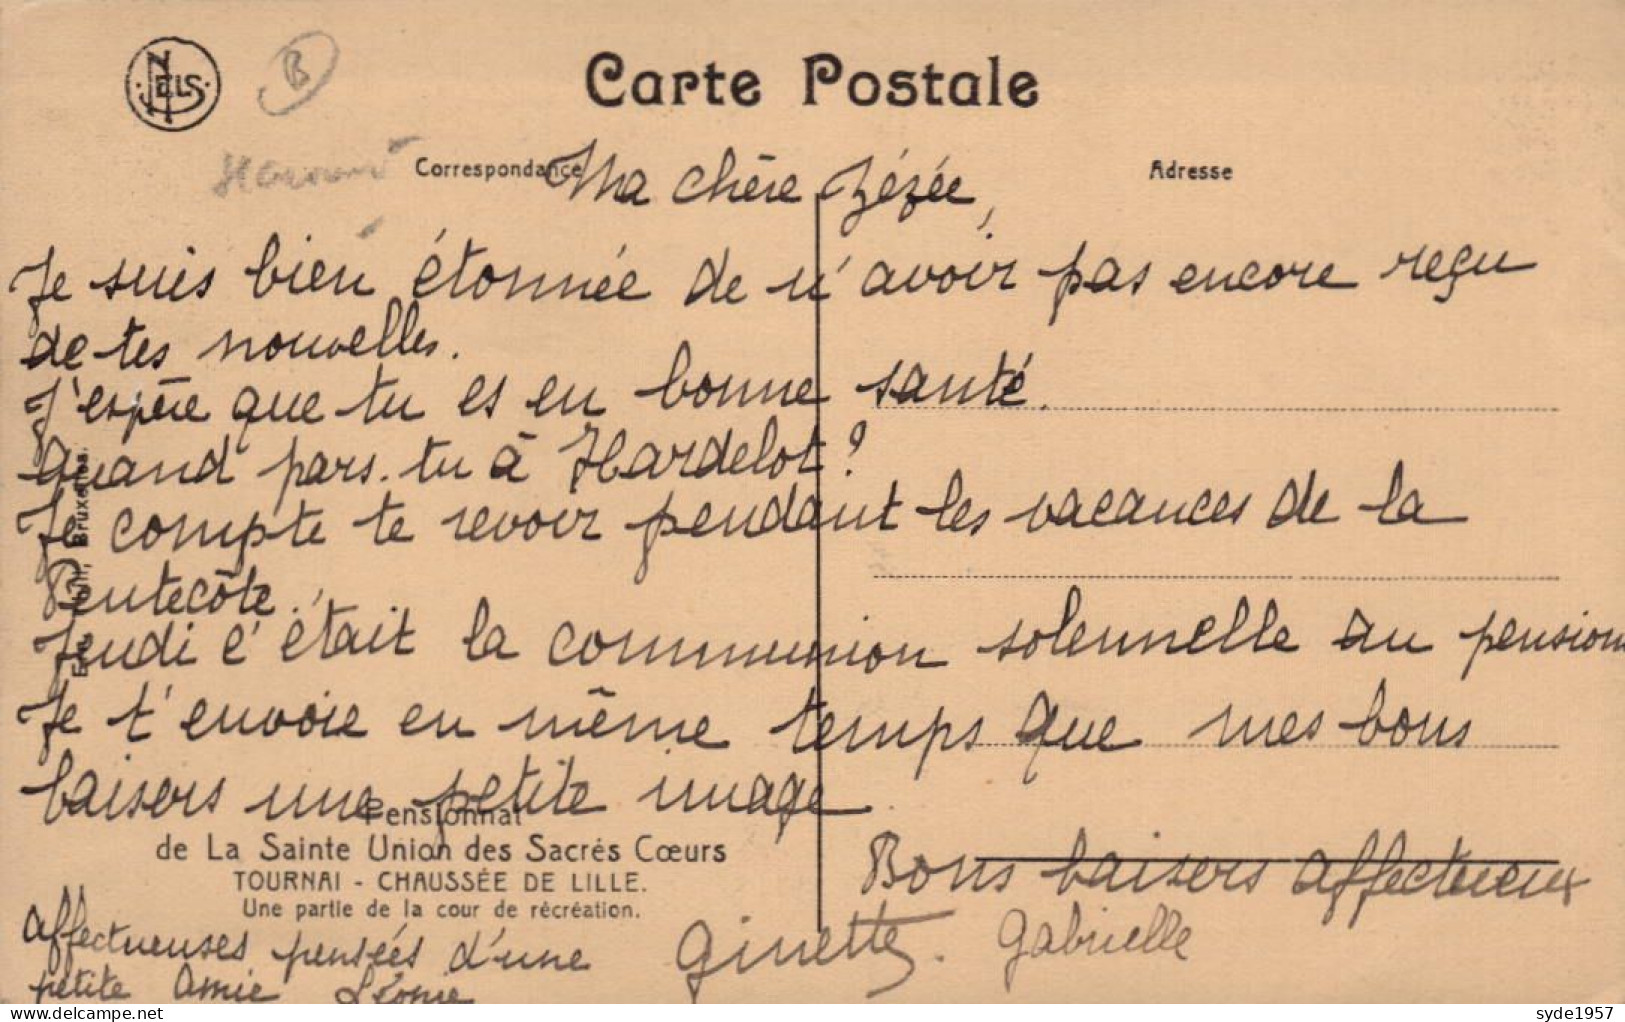 NELS
B
Carte Postale
Correspondance
Adresse
Ma chère Zézée,
Je suis bien étonnée de n'avoir pas encore reçu
de tes nouvelles.
J'espère que tu es en bonne santé.
Quand pars-tu à Hardelot?
Je compte te revoir pendant les vacances de la
Pentecôte.
Jeudi c'était la communion solennelle au pension
Je t'envoie en même temps que mes bons
baisers une petite image.
Bons baisers affectueux
Ginette. Gabrielle
Bruxelles.
Pensionnat
de La Sainte Union des Sacrés Cœurs
TOURNAI - CHAUSSÉE DE LILLE.
Une partie de la cour de récréation.
Affectueuses pensées d'une
petite Amie Léonie
delcampe.net
syde1957